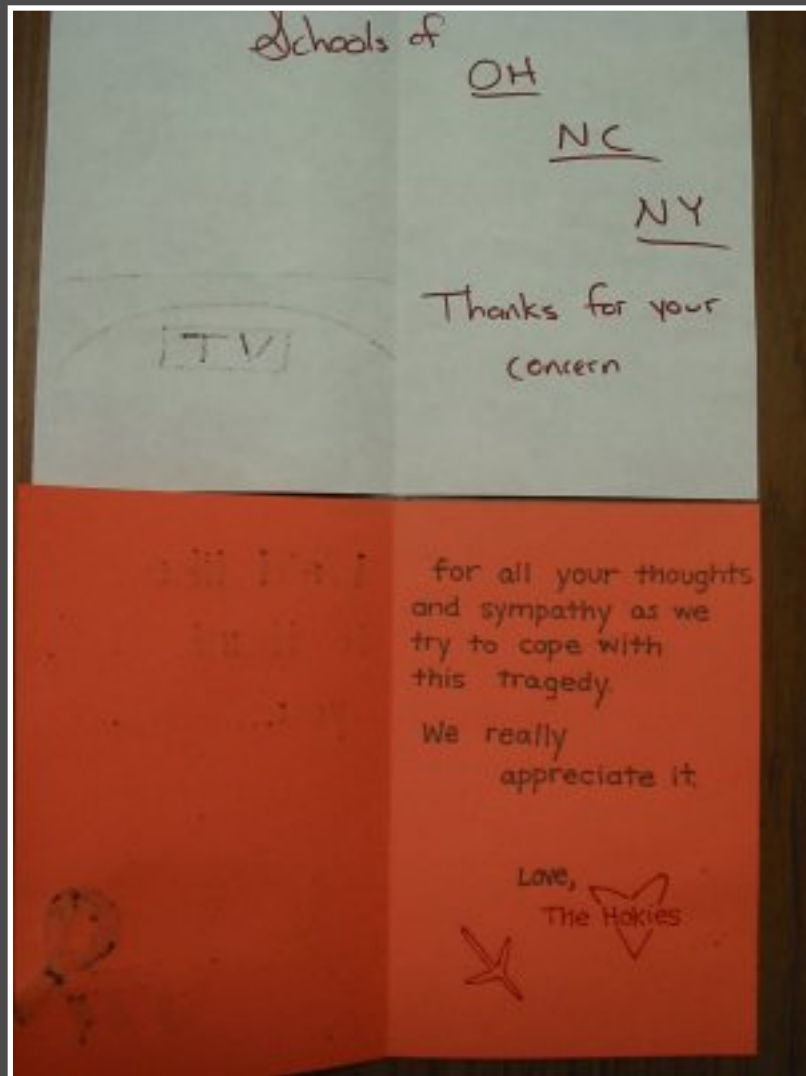 Schools of
OH
NC
NY
Thanks for your
concern
TV
for all your thoughts
and sympathy as we
try to cope with
this tragedy.
We really
appreciate it.
Love,
The Hokies